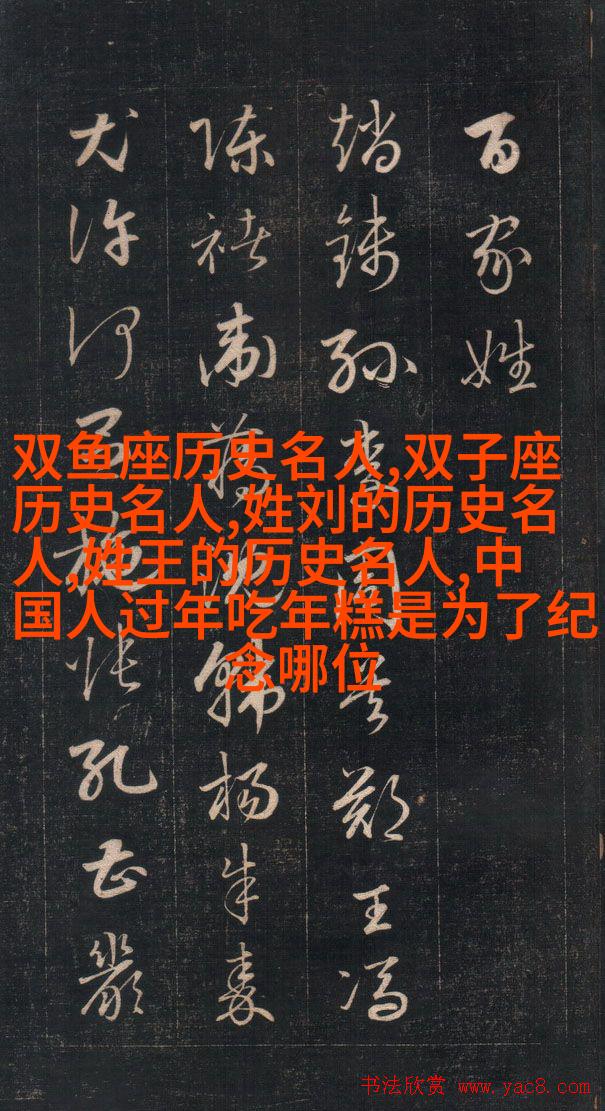 百家姓
赵钱孙李周吴郑王冯
陈褚卫蒋沈韩杨朱秦
尤许何吕施张孔曹严
双鱼座历史名人,双子座
历史名人,姓刘的历史名
人,姓王的历史名人,中
国人过年吃年糕是为了纪
念哪位
书法欣赏 www.yac8.com